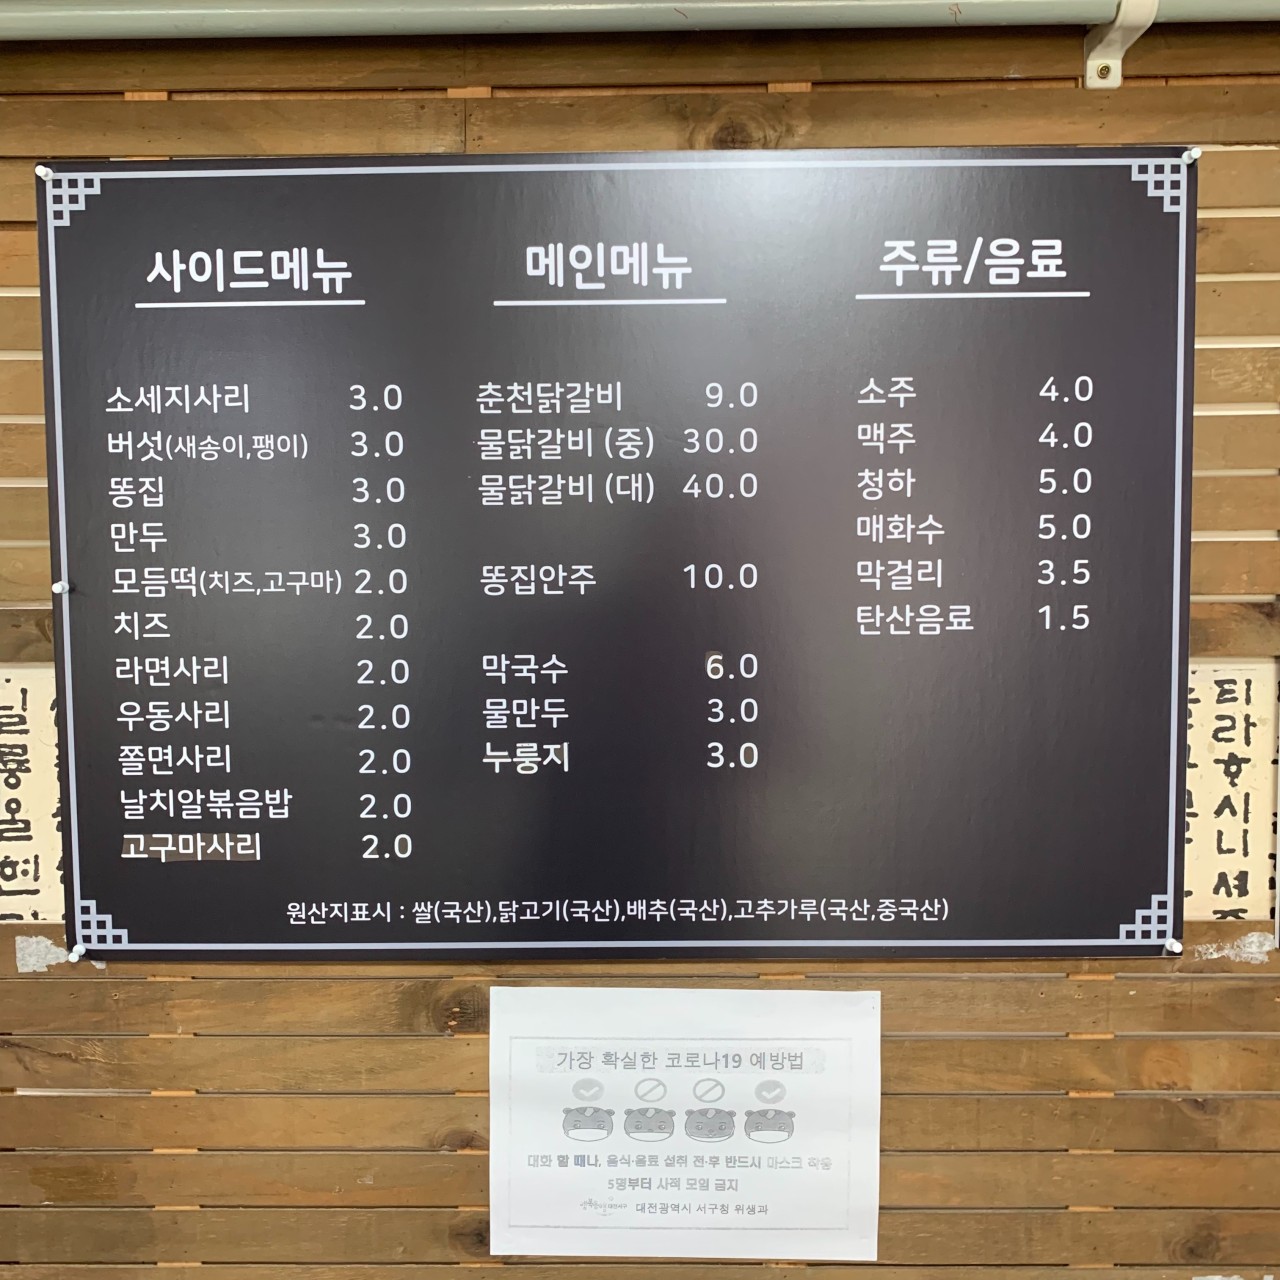 사이드메뉴
소세지사리 3.0
버섯(새송이,팽이) 3.0
똥집 3.0
만두 3.0
모듬떡(치즈,고구마) 2.0
치즈 2.0
라면사리 2.0
우동사리 2.0
쫄면사리 2.0
날치알볶음밥 2.0
고구마사리 2.0
메인메뉴
춘천닭갈비 9.0
물닭갈비 (중) 30.0
물닭갈비 (대) 40.0
똥집안주 10.0
막국수 6.0
물만두 3.0
누룽지 3.0
주류/음료
소주 4.0
맥주 4.0
청하 5.0
매화수 5.0
막걸리 3.5
탄산음료 1.5
원산지표시 : 쌀(국산),닭고기(국산),배추(국산),고추가루(국산,중국산)
가장 확실한 코로나19 예방법
대화 할 때나, 음식·음료 섭취 전·후 반드시 마스크 착용
5명부터 사적 모임 금지
대전광역시 서구청 위생과